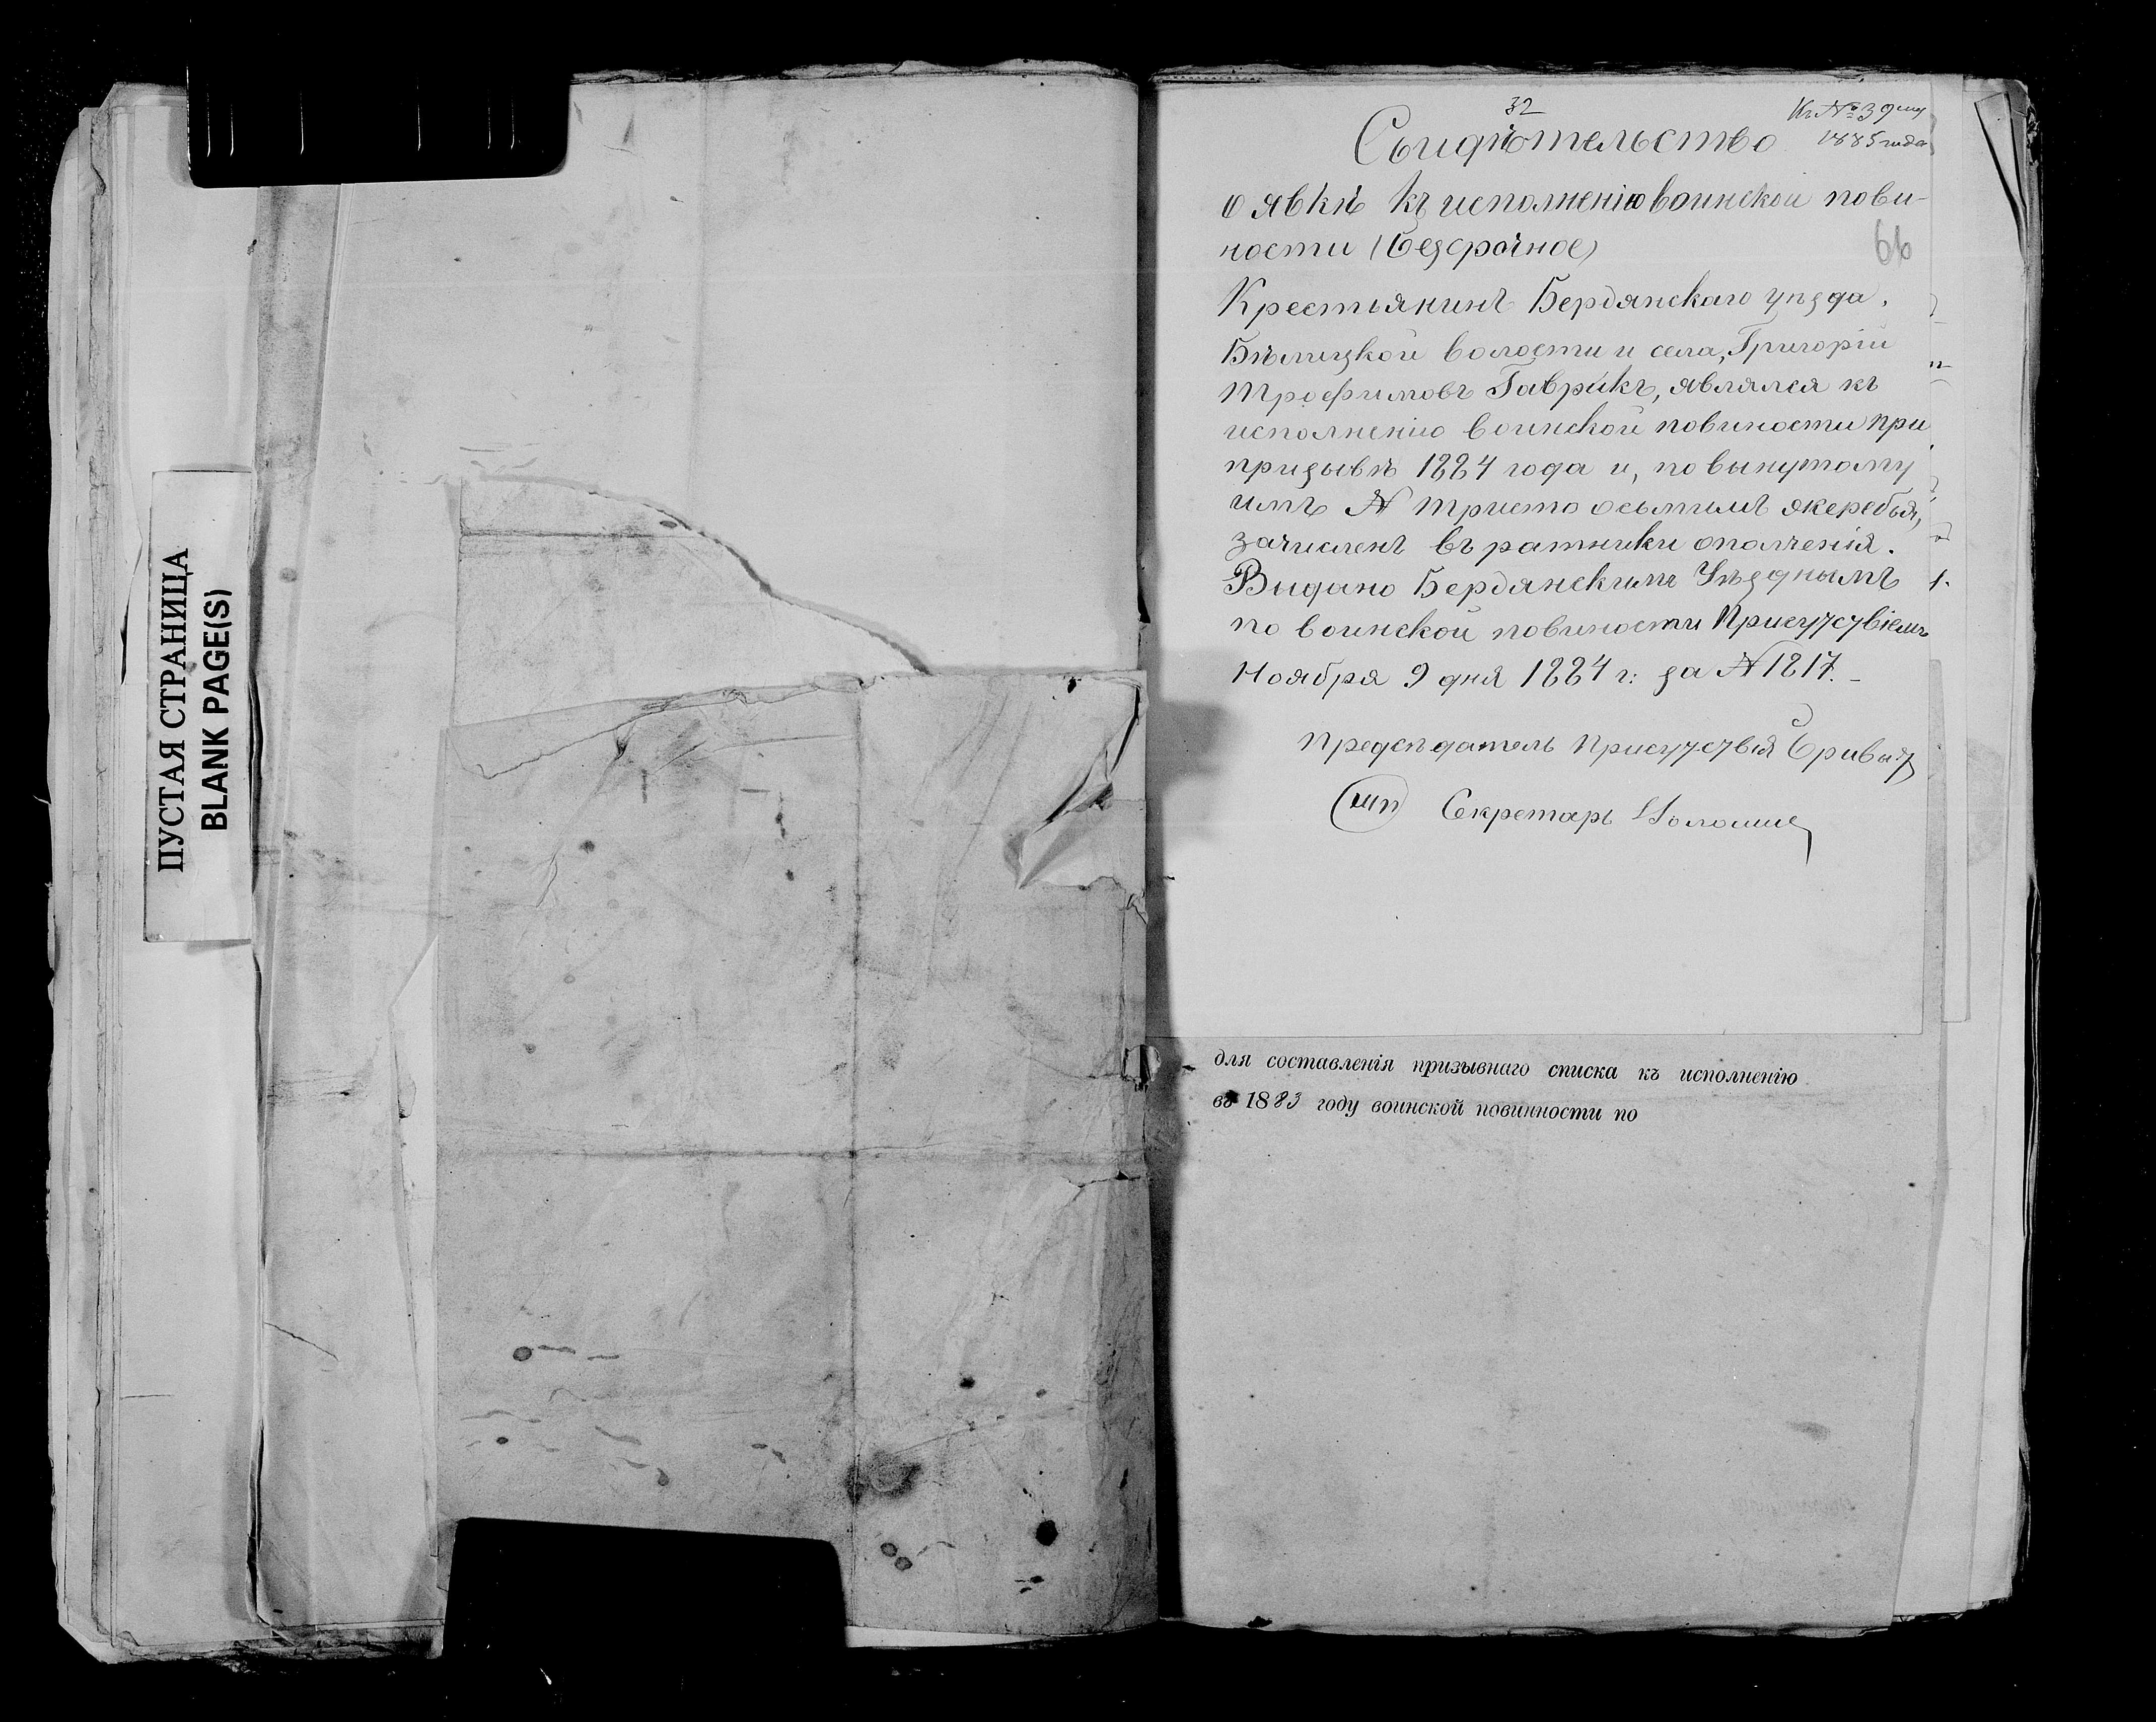 ПУСТАЯ СТРАНИЦА
BLANK PAGE(S)
32
Къ № 39
1885 года
Свидѣтельство
о явкѣ къ исполненію воинской пови-
ности (безсрочное)
66
Крестьянинъ Бердянскаго уѣзда.
Бѣлицкой волости и села, Григорій
Трофимовъ Гаврикъ, являлся къ
исполненію воинской повиности при
призывѣ 1884 года и, по вынутому
имъ № триста осьмимъ жеребья,
зачисленъ въ ратники ополченія.
Выдано Бердянскимъ Уѣзднымъ
по воинской повиности Присутствіемъ
Ноября 9 дня 1884 г: за № 1817. -
Предсѣдатель Присутствія
(мп) Секретарь
для составленія призывнаго списка къ исполненію
въ 1883 году воинской повинности по